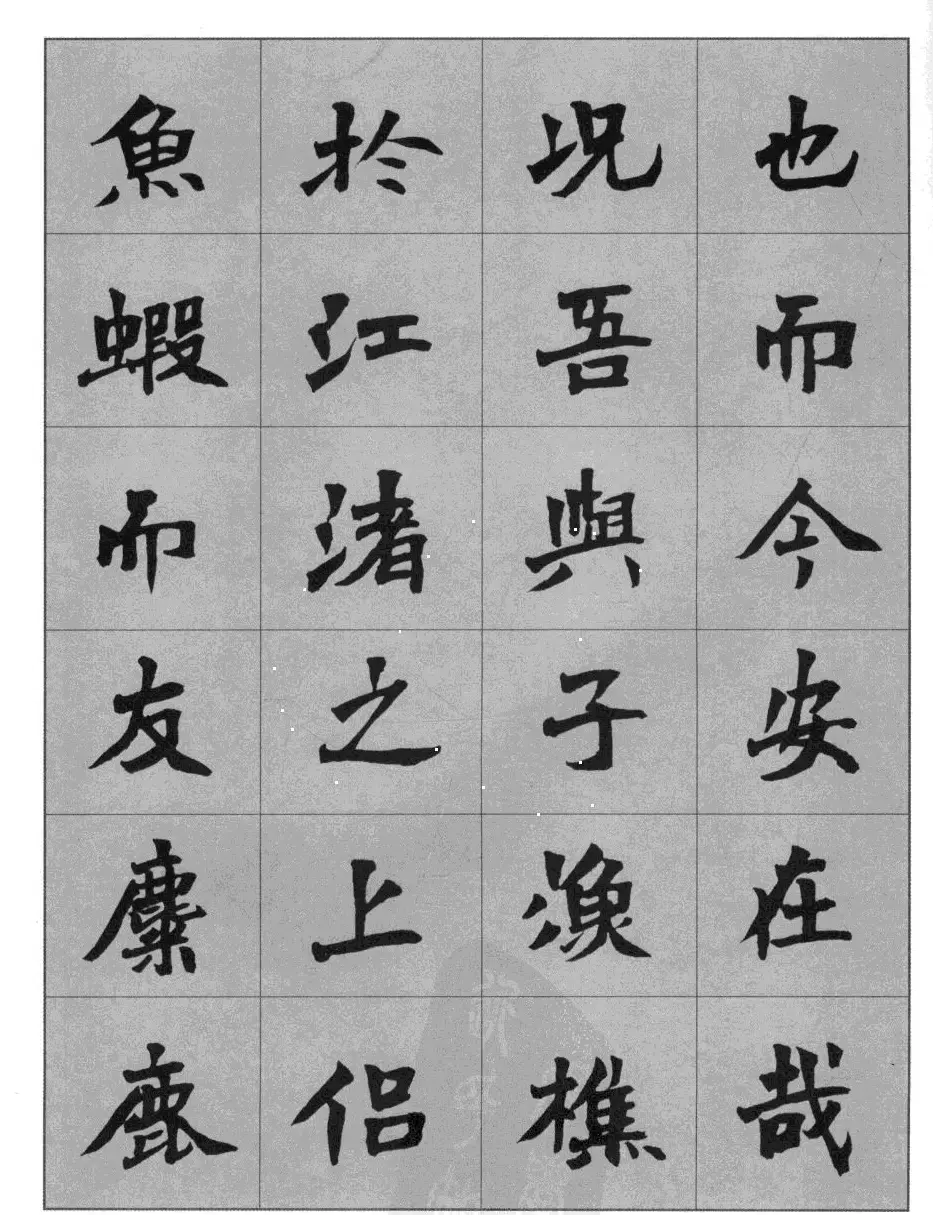 也而今安在哉
況吾與子漁樵
於江渚之上侣
魚蝦而友麋鹿